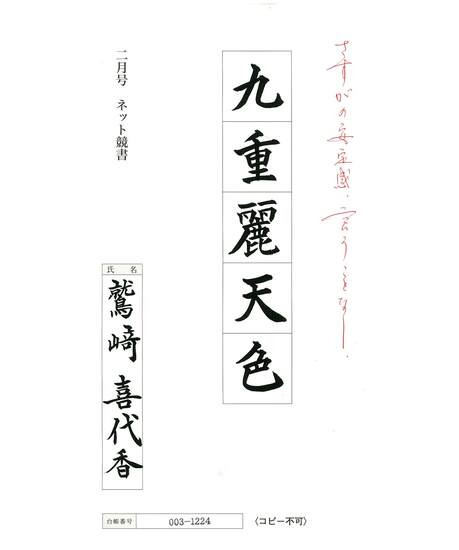 さすがの安定感、言うことなし。
九重麗天色
二月号 ネット競書
氏名
鷲﨑 喜代香
台帳番号
003-1224
〈コピー不可〉